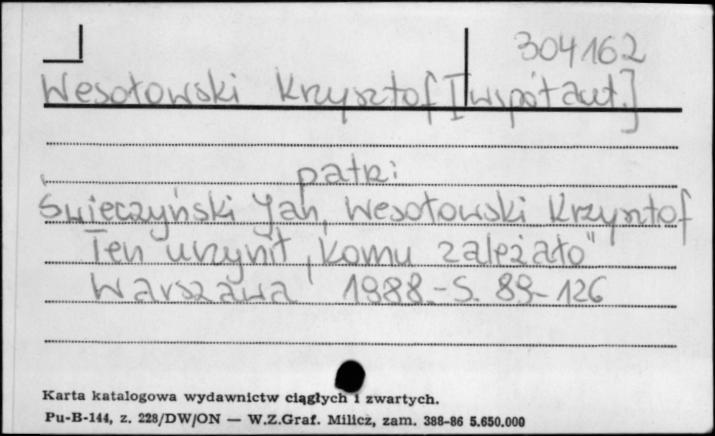 304162
Wesołowski Krzysztof [współaut.]
patrz:
Świeczyński Jan, Wesołowski Krzysztof
Ten uczynił, komu zależało"
Warszawa 1988.-S. 89-126
Karta katalogowa wydawnictw ciągłych i zwartych.
Pu-B-144, z. 228/DW/ON — W.Z.Graf. Milicz, zam. 388-86 5.650.000